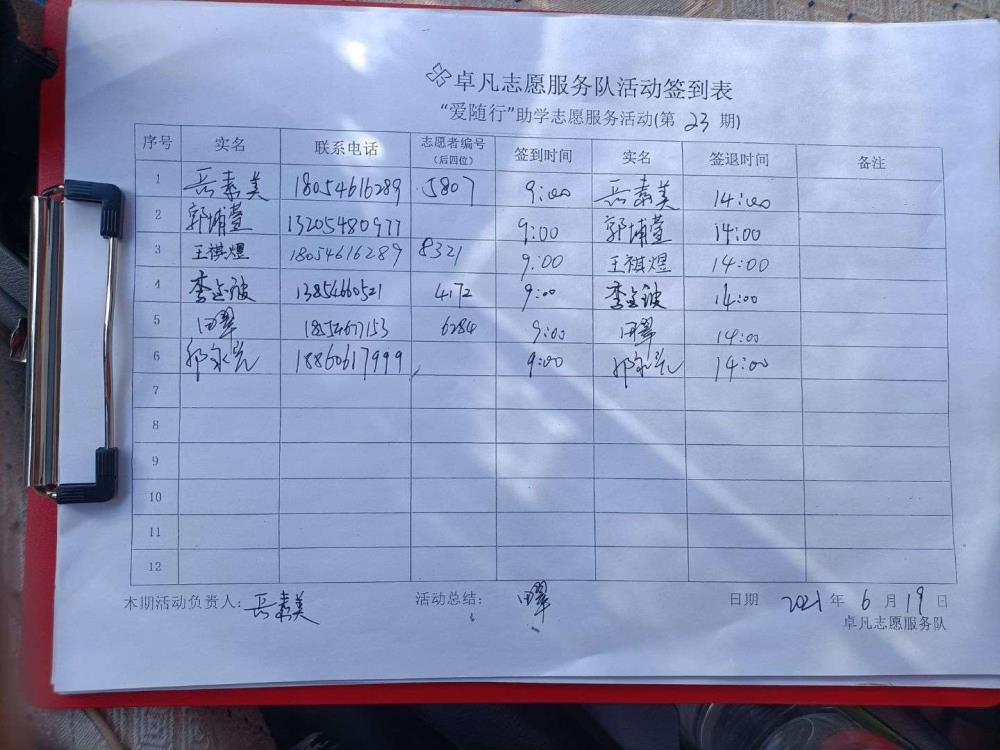 卓凡志愿服务队活动签到表
“爱随行”助学志愿服务活动(第 23 期)
序号 实名 联系电话 志愿者编号(后四位) 签到时间 实名 签退时间 备注
1 岳素美 18054616289 5807 9:00 岳素美 14:00
2 郭埔萱 13205480977 9:00 郭埔萱 14:00
3 王祺煜 18054616289 8321 9:00 王祺煜 14:00
4 13854660521 4172 9:00 14:00
5 田翠 18554677153 6284 9:00 田翠 14:00
6 郭永光 18860617999 9:00 郭永光 14:00
7
8
9
10
11
12
本期活动负责人: 岳素美 活动总结: 田翠 日期 2021 年 6 月 19 日
卓凡志愿服务队